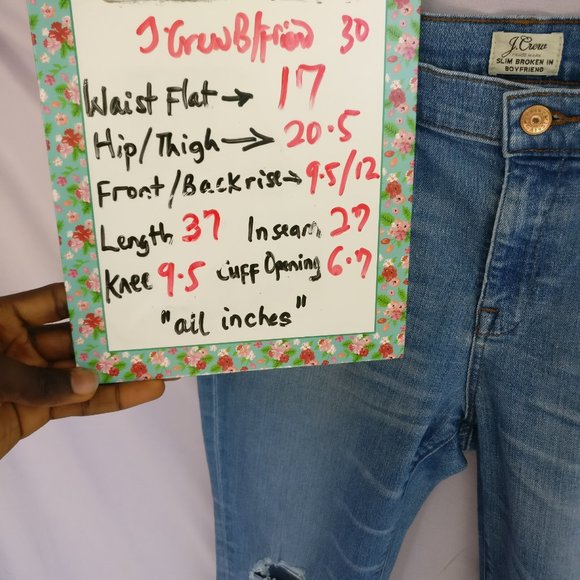 J Crew B/friend 30
Waist Flat → 17
Hip/Thigh → 20.5
Front/Back rise → 9.5/12
Length 37 Inseam 27
Knee 9.5 Cuff Opening 6.7
"all inches"
J.Crew
SLIM BROKEN IN
BOYFRIEND